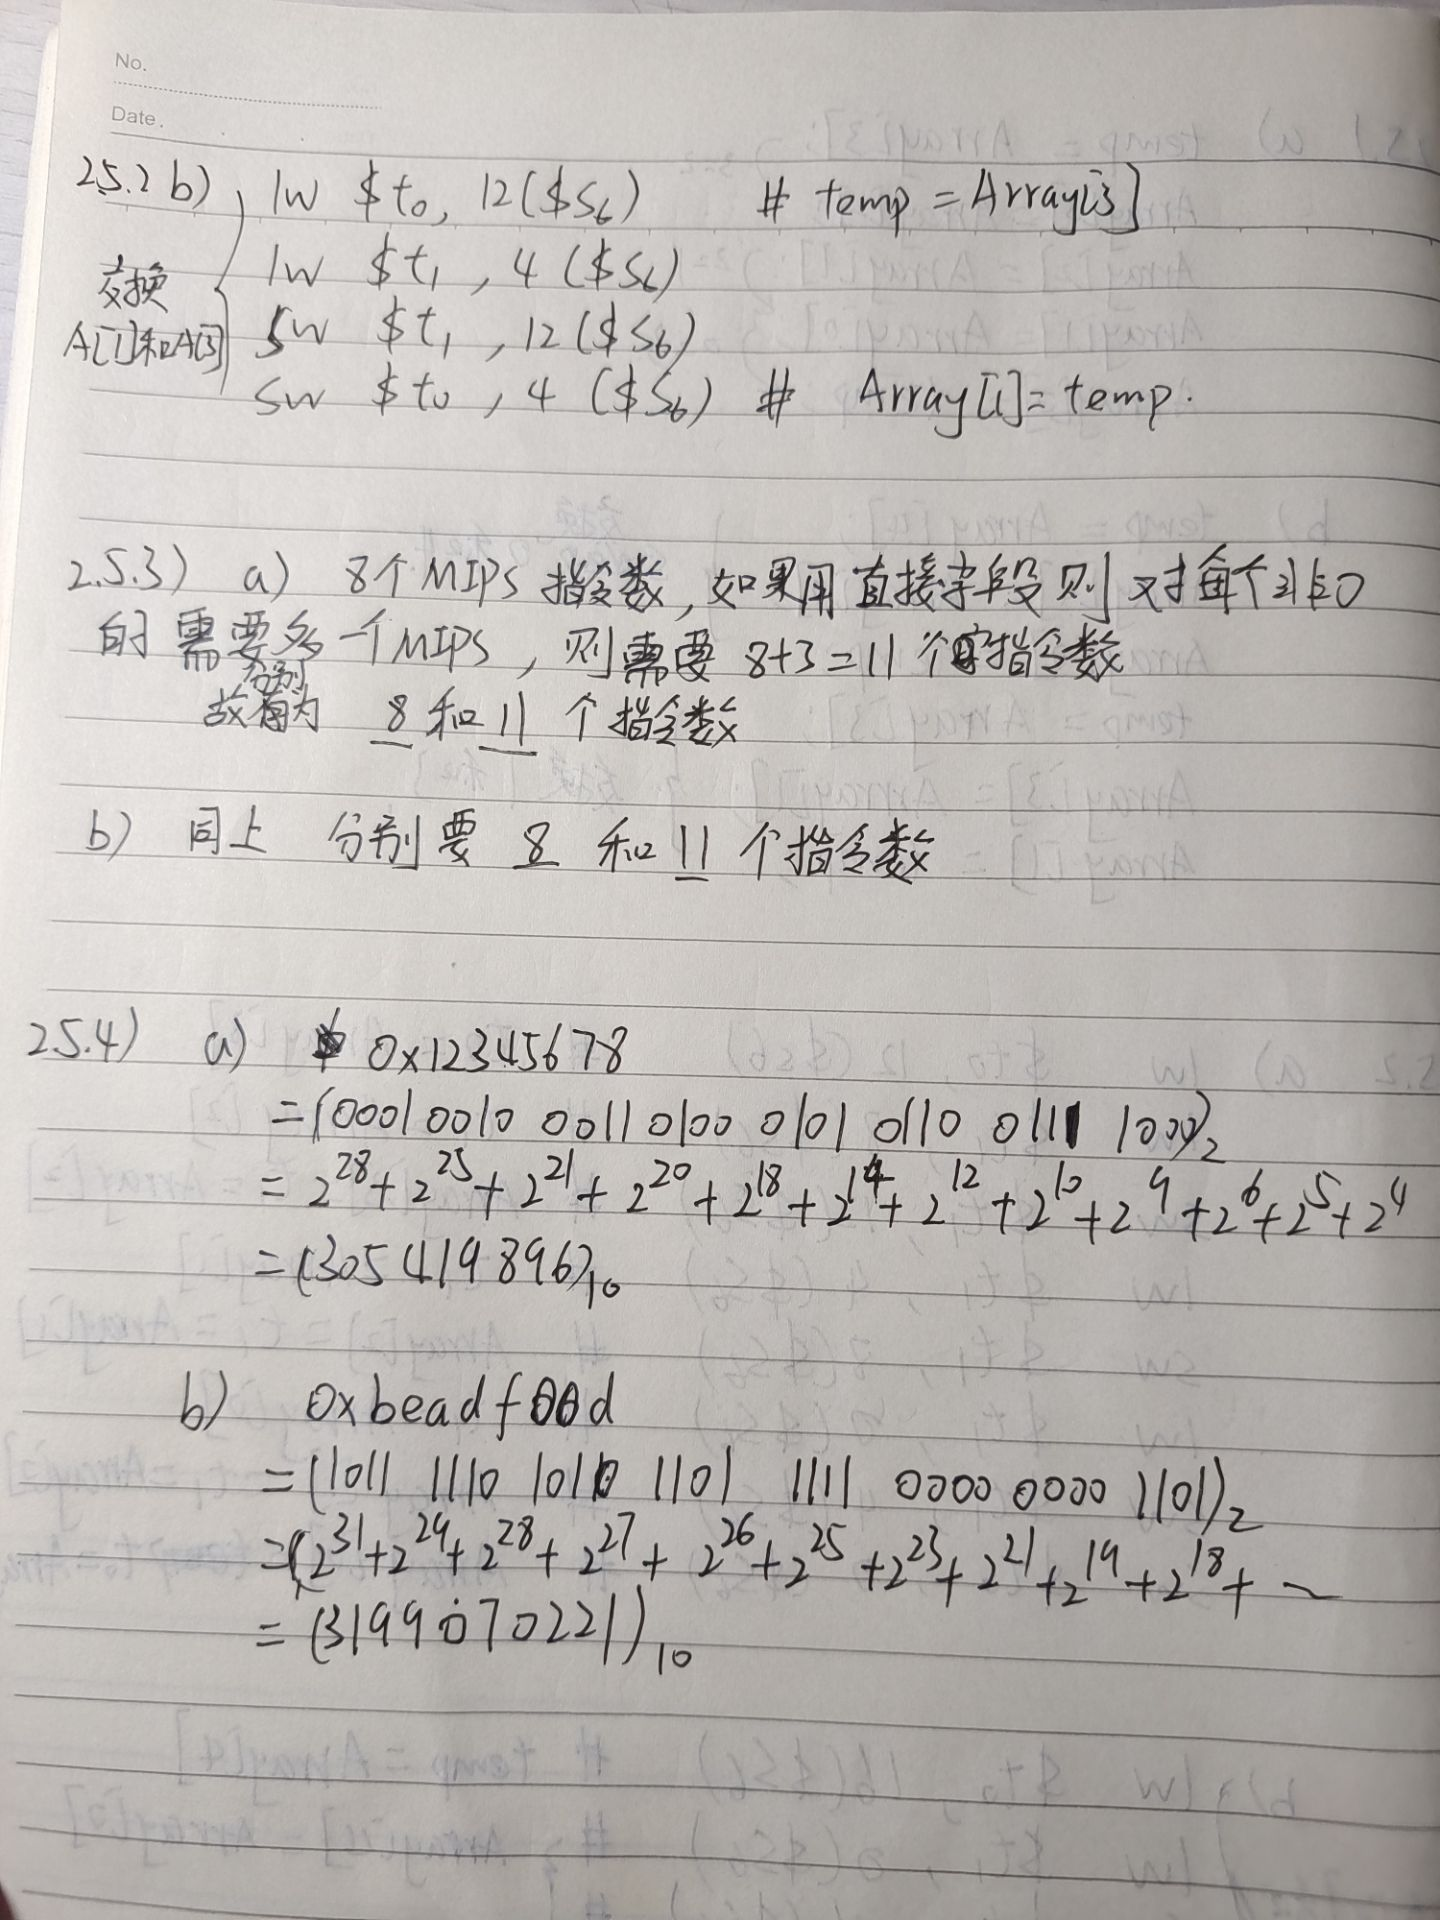 No.
Date.
2.5.2 b) lw $t0, 12($s6) # temp = Array[3]
lw $t1, 4($s6)
交换
A[1]和A[3] sw $t1, 12($s6)
sw $t0, 4($s6) # Array[1] = temp.
2.5.3) a) 8个MIPS 指令数,如果用直接字段则对每个非0
的需要多一个MIPS,则需要 8+3=11 个指令数
分别
故为 8 和 11 个指令数
b) 同上 分别要 8 和 11 个指令数
2.5.4) a) 0x12345678
=(0001 0010 0011 0100 0101 0110 0111 1000)₂
= 2²⁸+2²⁵+2²¹+2²⁰+2¹⁸+2¹⁴+2¹²+2¹⁰+2⁹+2⁶+2⁵+2⁴
=(305419896)₁₀
b) 0xbeadf00d
=(1011 1110 1010 1101 1111 0000 0000 1101)₂
=(2³¹+2²⁹+2²⁸+2²⁷+2²⁶+2²⁵+2²³+2²¹+2¹⁹+2¹⁸+ ~
=(3199070221)₁₀